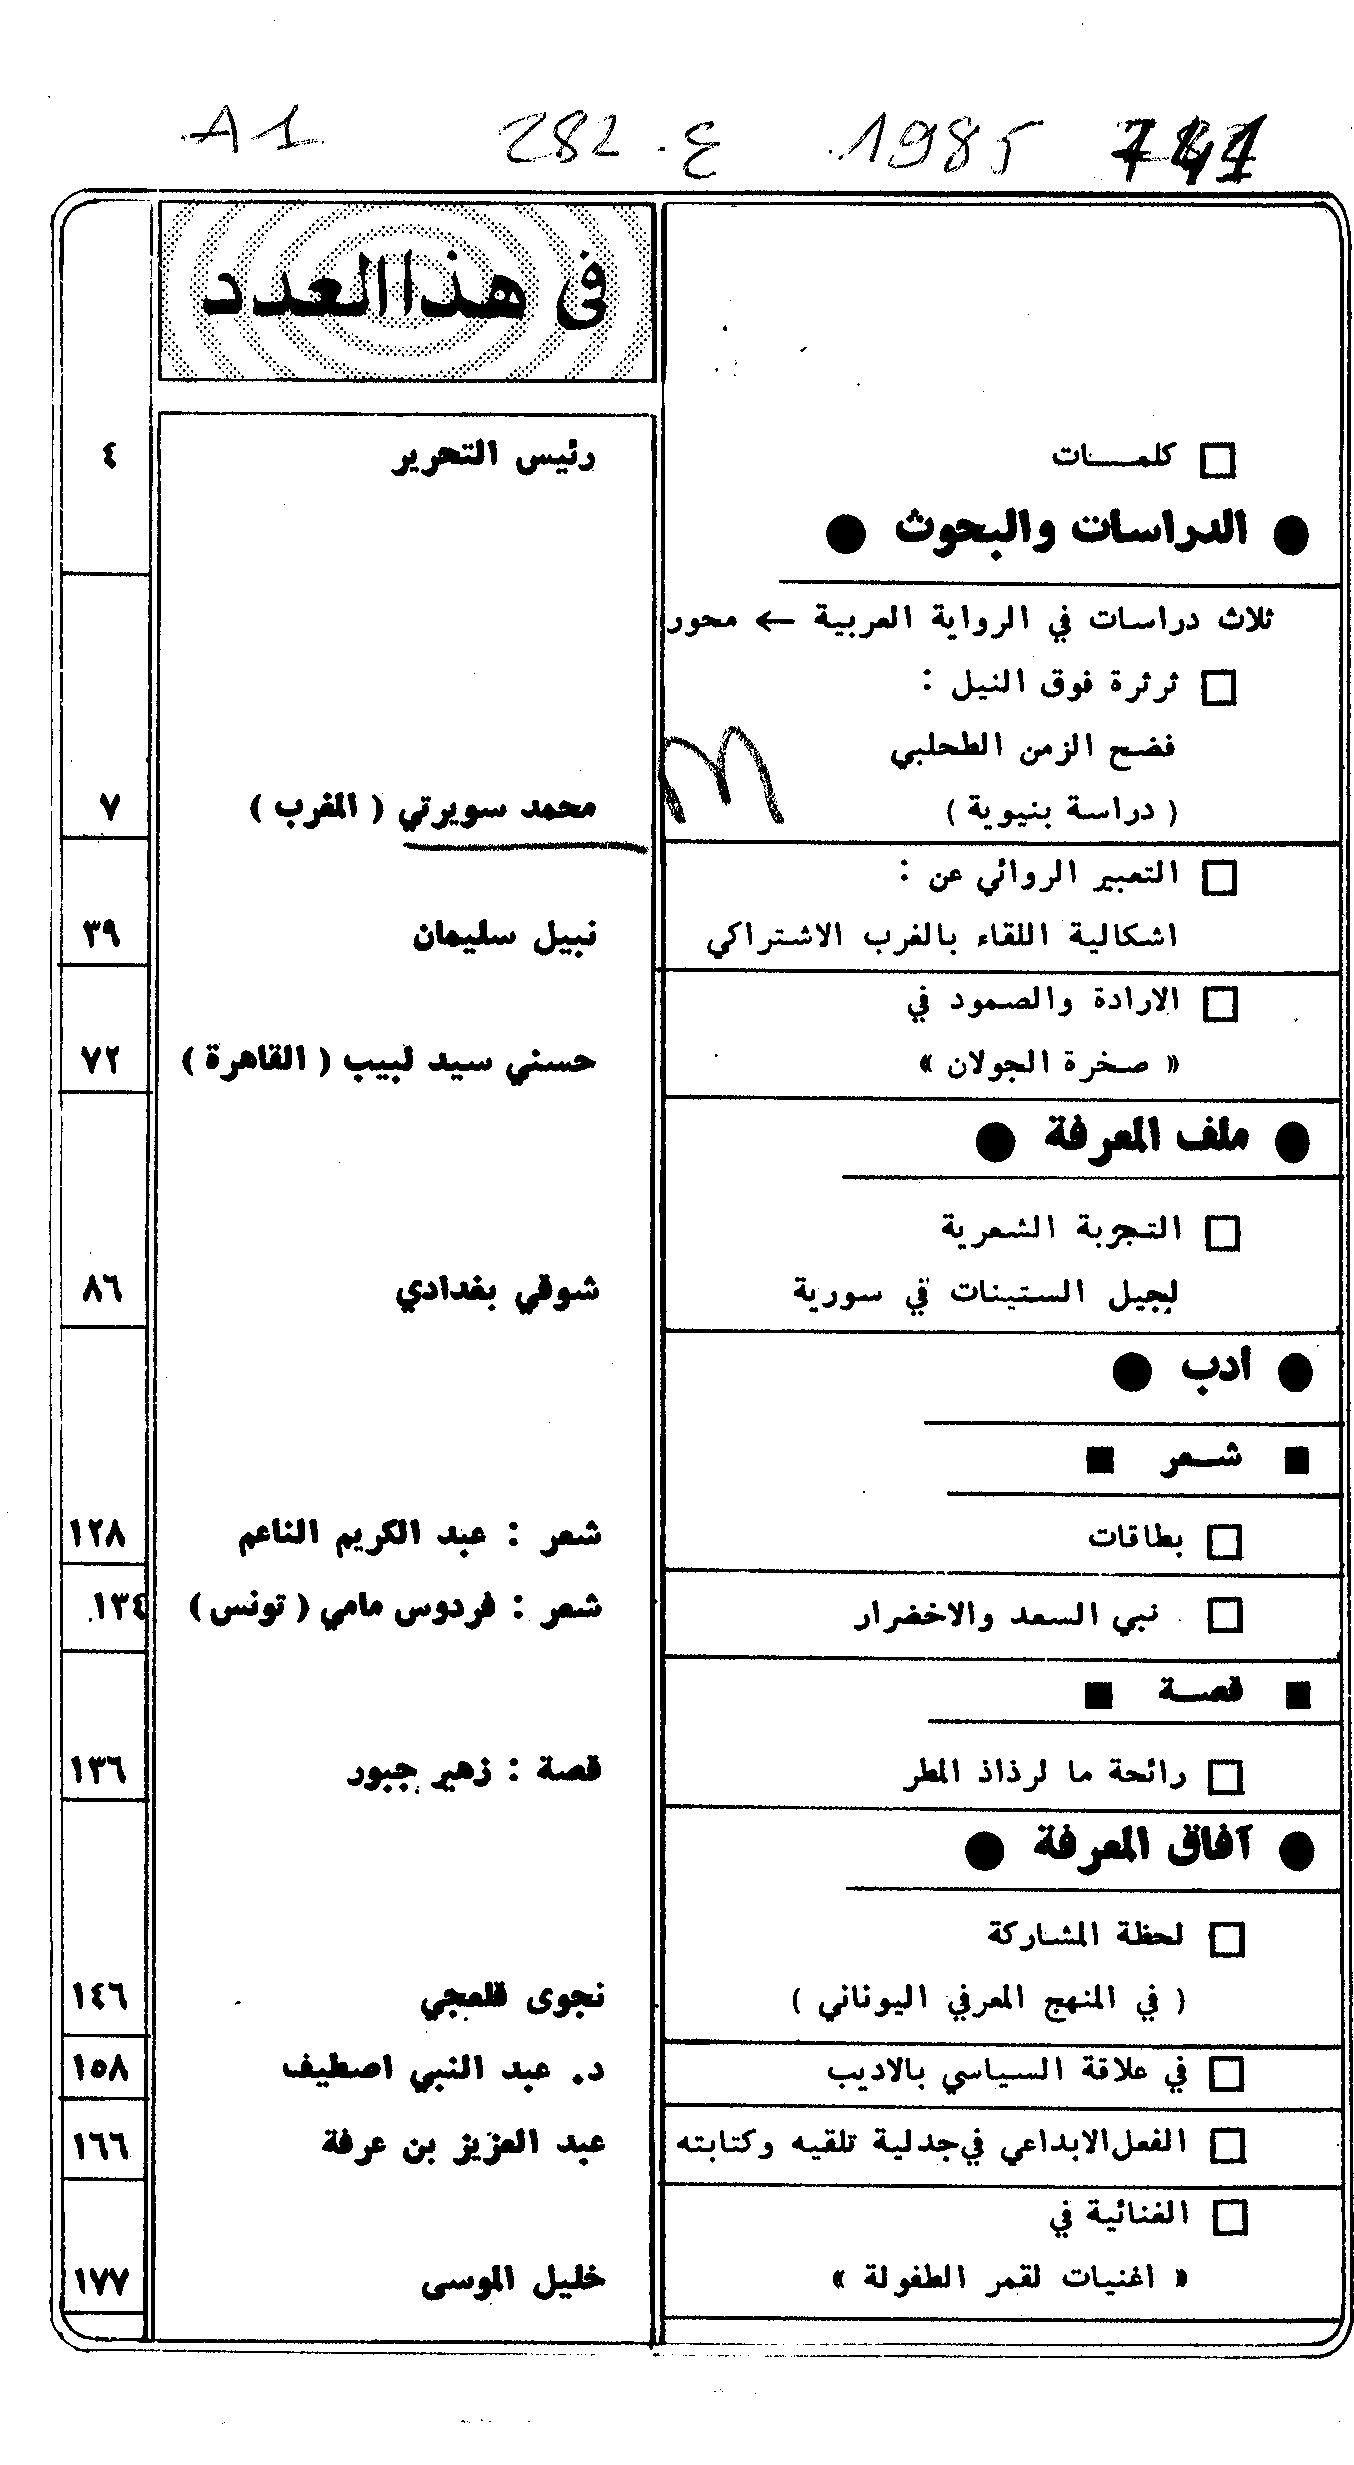 A1 282 ع. 1985
في هذا العدد
□ كلمــات رئيس التحرير ٤
● الدراسات والبحوث ●
ثلاث دراسات في الرواية العربية ← محور
□ ثرثرة فوق النيل :
فضح الزمن الطحلبي
( دراسة بنيوية ) محمد سويرتي ( المغرب ) ٧
□ التعبير الروائي عن :
اشكالية اللقاء بالغرب الاشتراكي نبيل سليمان ٣٩
□ الارادة والصمود في
« صخرة الجولان » حسني سيد لبيب ( القاهرة ) ٧٢
● ملف المعرفة ●
□ التجربة الشعرية
لجيل الستينات في سورية شوقي بغدادي ٨٦
● أدب ●
■ شــعر ■
□ بطاقات شعر : عبد الكريم الناعم ١٢٨
□ نبي السعد والاخضرار شعر : فردوس مامي ( تونس ) ١٣٤
■ قصــة ■
□ رائحة ما لرذاذ المطر قصة : زهير جبور ١٣٦
● آفاق المعرفة ●
□ لحظة المشاركة
( في المنهج المعرفي اليوناني ) نجوى قلعجي ١٤٦
□ في علاقة السياسي بالاديب د. عبد النبي اصطيف ١٥٨
□ الفعل الابداعي في جدلية تلقيه وكتابته عبد العزيز بن عرفة ١٦٦
□ الغنائية في
« اغنيات لقمر الطفولة » خليل الموسى ١٧٧